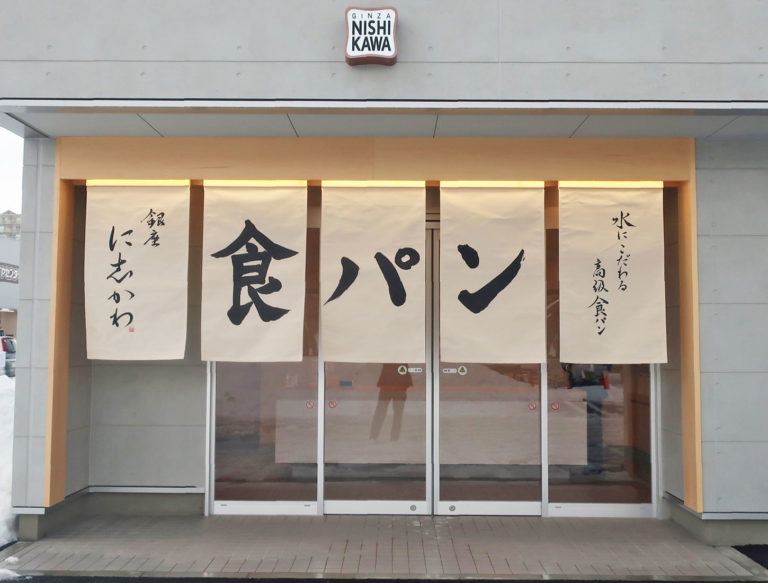 GINZA
NISHI
KAWA
銀座
に志かわ
食パン
水にこだわる
高級食パン